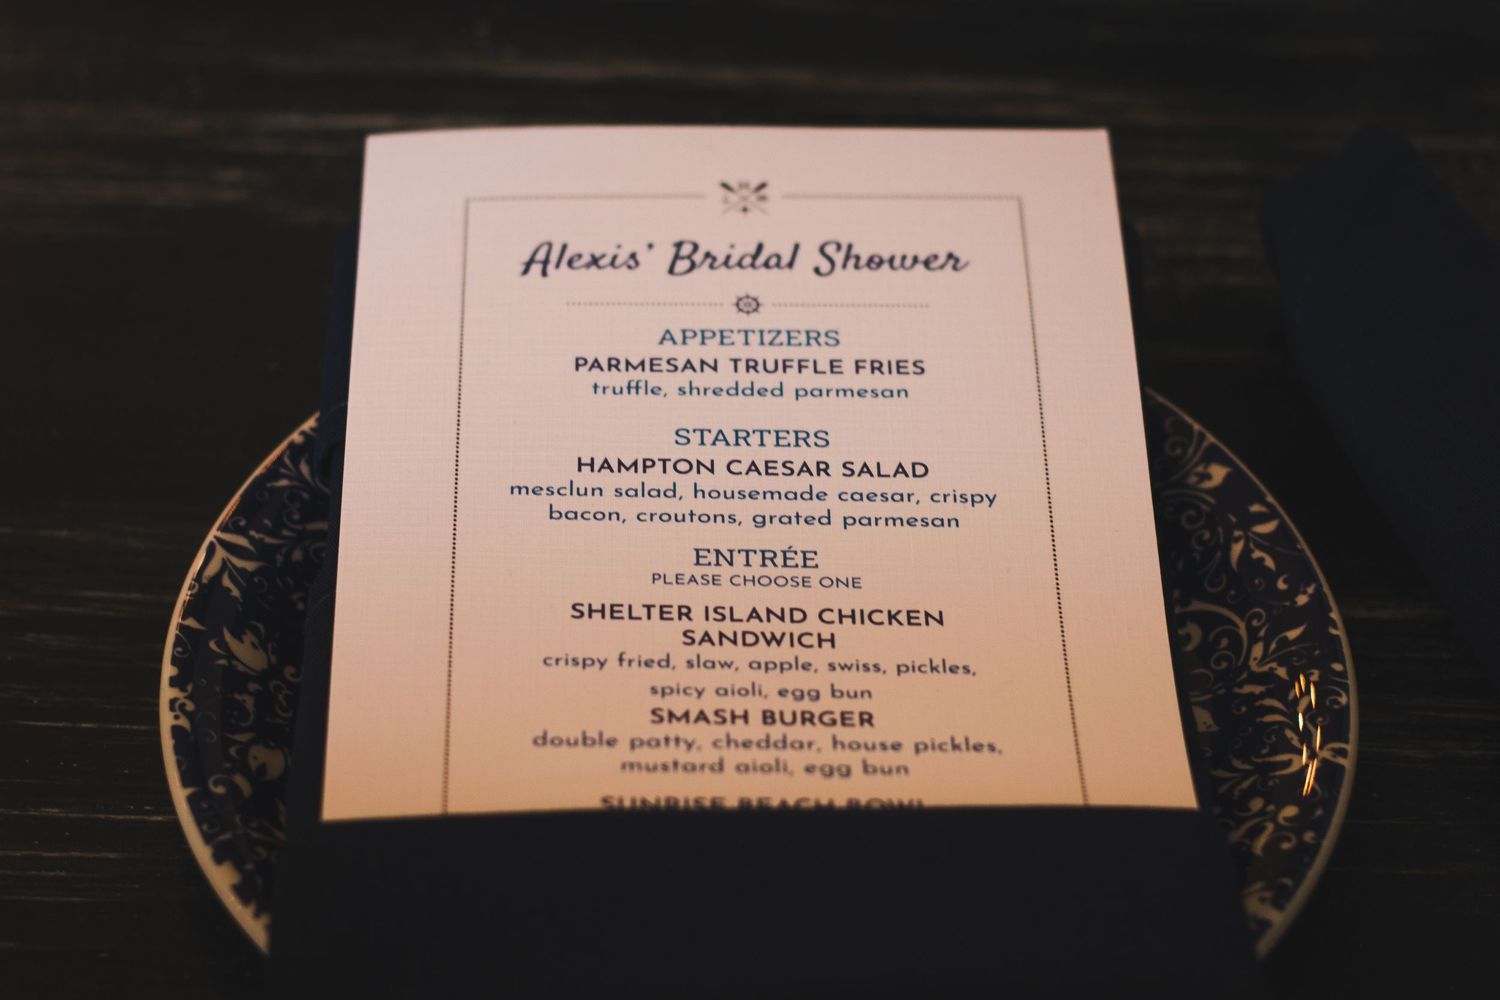 Alexis' Bridal Shower
APPETIZERS
PARMESAN TRUFFLE FRIES
truffle, shredded parmesan
STARTERS
HAMPTON CAESAR SALAD
mesclun salad, housemade caesar, crispy
bacon, croutons, grated parmesan
ENTRÉE
PLEASE CHOOSE ONE
SHELTER ISLAND CHICKEN
SANDWICH
crispy fried, slaw, apple, swiss, pickles,
spicy aioli, egg bun
SMASH BURGER
double patty, cheddar, house pickles,
mustard aioli, egg bun
SUNRISE BEACH BOWL